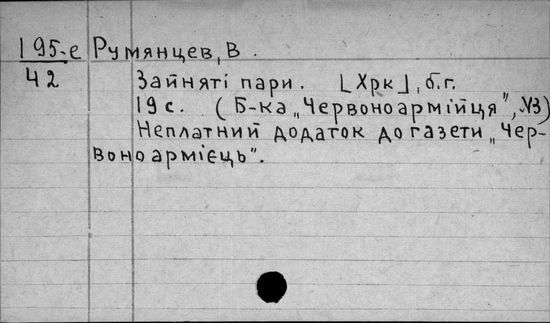 195-е Румянцев, В.
42
Зайняті пари. [Хрк], б.г.
19с. (Б-ка „Червоноармійця", №3)
Неплатний додаток до газети „Чер-
воноармієць".